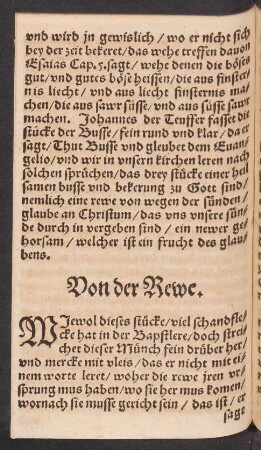 vnd wird jn gewislich / wo er nicht sich
bey der zeit bekeret / das wehe treffen dauon
Esaias Cap. 5. sagt / wehe denen die böses
gut / vnd gutes böse heissen / die aus finster-
nis liecht / vnd aus liecht finsternis ma-
chen / die aus sawr süsse / vnd aus süsse sawr
machen. Johannes der Teuffer fasset die
stücke der Busse / fein rund vnd klar / da er
sagt / Thut Busse vnd gleubet dem Euan-
gelio / vnd wir in vnsern kirchen leren nach
solchen sprüchen / das drey stücke einer heil
samen busse vnd bekerung zu Gott sind /
nemlich eine rewe von wegen der sünden /
glaube an Christum / das vns vnsere sün-
de durch in vergeben sind / ein newer ge-
horsam / welcher ist ein frucht des glau-
bens.
Von der Rewe.
WJewol dieses stücke / viel schandfle-
cke hat in der Bapstlere / doch strei-
chet dieser Münch fein drüber her /
vnd mercke mit vleis / das er nicht mit ei-
nem worte leret / woher die rewe jren vr-
sprung mus haben / wo sie her mus komen /
wornach sie musse gericht sein / das ist / er
sagt